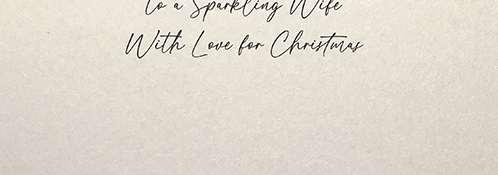 to a Sparkling Wife
With Love for Christmas